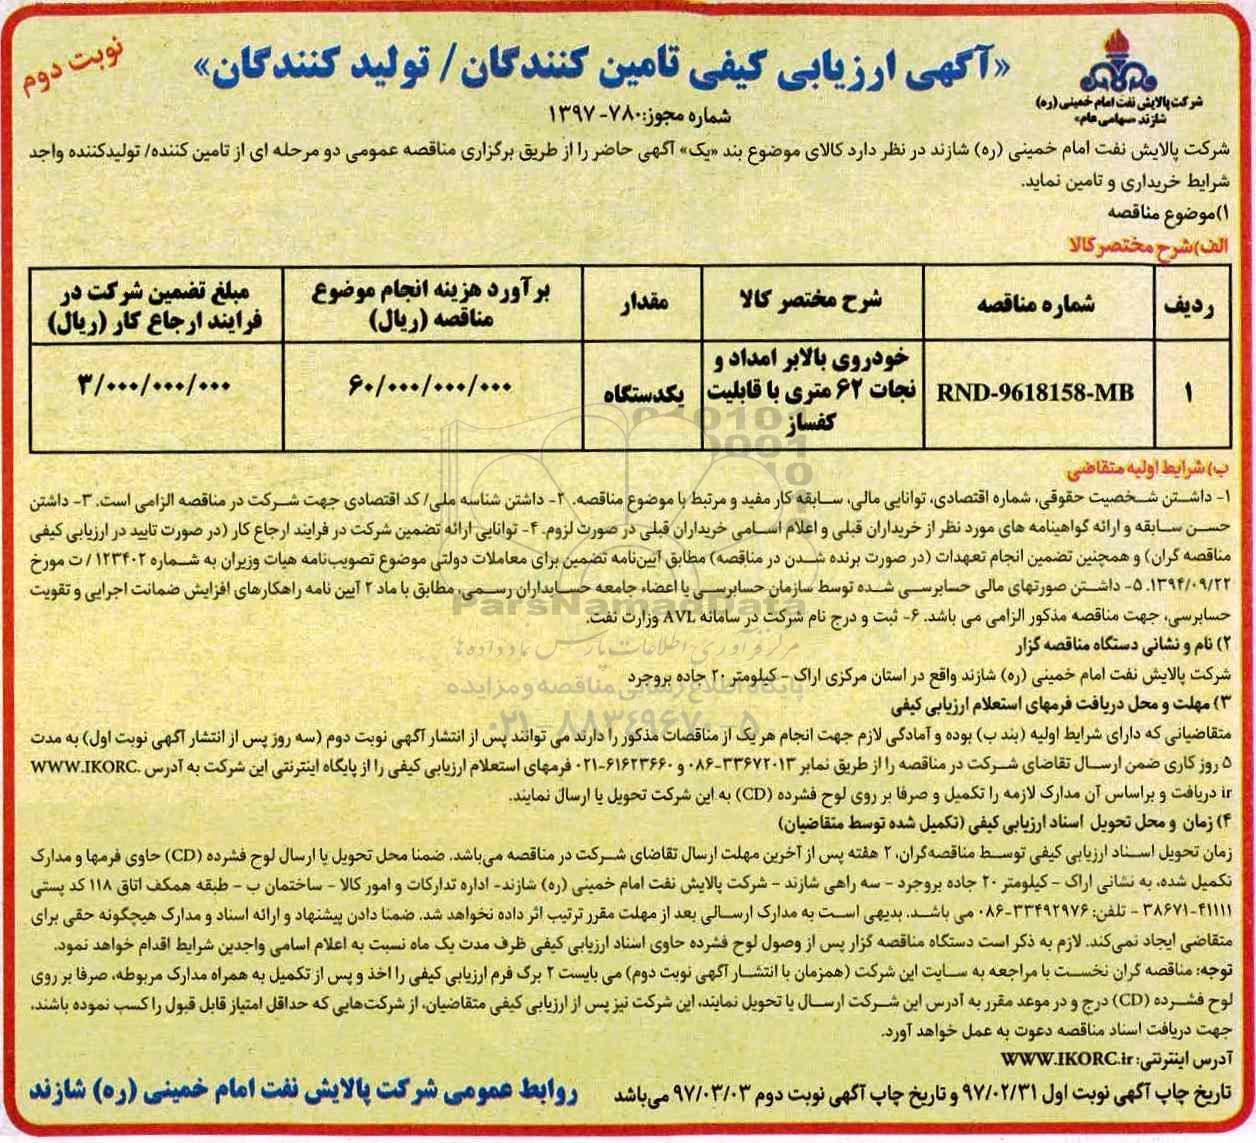 نوبت دوم
شرکت پالایش نفت امام خمینی (ره)
شازند «سهامی عام»
«آگهی ارزیابی کیفی تامین کنندگان/ تولید کنندگان»
شماره مجوز:۷۸۰-۱۳۹۷
شرکت پالایش نفت امام خمینی (ره) شازند در نظر دارد کالای موضوع بند «یک» آگهی حاضر را از طریق برگزاری مناقصه عمومی دو مرحله ای از تامین کننده/ تولیدکننده واجد
شرایط خریداری و تامین نماید.
۱)موضوع مناقصه
الف)شرح مختصر کالا
ردیف	شماره مناقصه	شرح مختصر کالا	مقدار	برآورد هزینه انجام موضوع مناقصه (ریال)	مبلغ تضمین شرکت در فرایند ارجاع کار (ریال)
۱	RND-9618158-MB	خودروی بالابر امداد و نجات ۶۲ متری با قابلیت کفساز	یکدستگاه	۶۰/۰۰۰/۰۰۰/۰۰۰	۳/۰۰۰/۰۰۰/۰۰۰
ب)شرایط اولیه متقاضی
۱- داشتن شخصیت حقوقی، شماره اقتصادی، توانایی مالی، سابقه کار مفید و مرتبط با موضوع مناقصه. ۲- داشتن شناسه ملی/ کد اقتصادی جهت شرکت در مناقصه الزامی است. ۳- داشتن
حسن سابقه و ارائه گواهینامه های مورد نظر از خریداران قبلی و اعلام اسامی خریداران قبلی در صورت لزوم. ۴- توانایی ارائه تضمین شرکت در فرایند ارجاع کار (در صورت تایید در ارزیابی کیفی
مناقصه گران) و همچنین تضمین انجام تعهدات (در صورت برنده شدن در مناقصه) مطابق آیین‌نامه تضمین برای معاملات دولتی موضوع تصویب‌نامه هیات وزیران به شماره ۱۲۳۴۰۲ / ت مورخ
۱۳۹۴/۰۹/۲۲. ۵- داشتن صورتهای مالی حسابرسی شده توسط سازمان حسابرسی یا اعضاء جامعه حسابداران رسمی، مطابق با ماد ۲ آیین نامه راهکارهای افزایش ضمانت اجرایی و تقویت
حسابرسی، جهت مناقصه مذکور الزامی می باشد. ۶- ثبت و درج نام شرکت در سامانه AVL وزارت نفت.
ParsNamadData
مرکز فرآوری اطلاعات پارس نماد داده ها
۲) نام و نشانی دستگاه مناقصه گزار
شرکت پالایش نفت امام خمینی (ره) شازند واقع در استان مرکزی اراک - کیلومتر ۲۰ جاده بروجرد
پایگاه اطلاع رسانی مناقصه و مزایده
۳) مهلت و محل دریافت فرمهای استعلام ارزیابی کیفی
۰۲۱-۸۸۳۴۹۶۷۰-۵
متقاضیانی که دارای شرایط اولیه (بند ب) بوده و آمادگی لازم جهت انجام هر یک از مناقصات مذکور را دارند می توانند پس از انتشار آگهی نوبت دوم (سه روز پس از انتشار آگهی نوبت اول) به مدت
۵ روز کاری ضمن ارسال تقاضای شرکت در مناقصه را از طریق نمابر ۳۳۶۷۲۰۱۳-۰۸۶ و ۶۱۶۲۳۶۶۰-۰۲۱ فرمهای استعلام ارزیابی کیفی را از پایگاه اینترنتی این شرکت به آدرس WWW.IKORC.
ir دریافت و براساس آن مدارک لازمه را تکمیل و صرفا بر روی لوح فشرده (CD) به این شرکت تحویل یا ارسال نمایند.
۴) زمان و محل تحویل اسناد ارزیابی کیفی (تکمیل شده توسط متقاضیان)
زمان تحویل اسناد ارزیابی کیفی توسط مناقصه‌گران، ۲ هفته پس از آخرین مهلت ارسال تقاضای شرکت در مناقصه می‌باشد. ضمنا محل تحویل یا ارسال لوح فشرده (CD) حاوی فرمها و مدارک
تکمیل شده، به نشانی اراک - کیلومتر ۲۰ جاده بروجرد - سه راهی شازند - شرکت پالایش نفت امام خمینی (ره) شازند- اداره تدارکات و امور کالا - ساختمان ب - طبقه همکف اتاق ۱۱۸ کد پستی
۴۱۱۱۱-۳۸۶۷۱ - تلفن: ۳۳۴۹۲۹۷۶-۰۸۶ می باشد. بدیهی است به مدارک ارسالی بعد از مهلت مقرر ترتیب اثر داده نخواهد شد. ضمنا دادن پیشنهاد و ارائه اسناد و مدارک هیچگونه حقی برای
متقاضی ایجاد نمی‌کند. لازم به ذکر است دستگاه مناقصه گزار پس از وصول لوح فشرده حاوی اسناد ارزیابی کیفی ظرف مدت یک ماه نسبت به اعلام اسامی واجدین شرایط اقدام خواهد نمود.
توجه: مناقصه گران نخست با مراجعه به سایت این شرکت (همزمان با انتشار آگهی نوبت دوم) می بایست ۲ برگ فرم ارزیابی کیفی را اخذ و پس از تکمیل به همراه مدارک مربوطه، صرفا بر روی
لوح فشرده (CD) درج و در موعد مقرر به آدرس این شرکت ارسال یا تحویل نمایند، این شرکت نیز پس از ارزیابی کیفی متقاضیان، از شرکت‌هایی که حداقل امتیاز قابل قبول را کسب نموده باشند،
جهت دریافت اسناد مناقصه دعوت به عمل خواهد آورد.
آدرس اینترنتی: WWW.IKORC.ir
تاریخ چاپ آگهی نوبت اول ۹۷/۰۲/۳۱ و تاریخ چاپ آگهی نوبت دوم ۹۷/۰۳/۰۳ می‌باشد
روابط عمومی شرکت پالایش نفت امام خمینی (ره) شازند